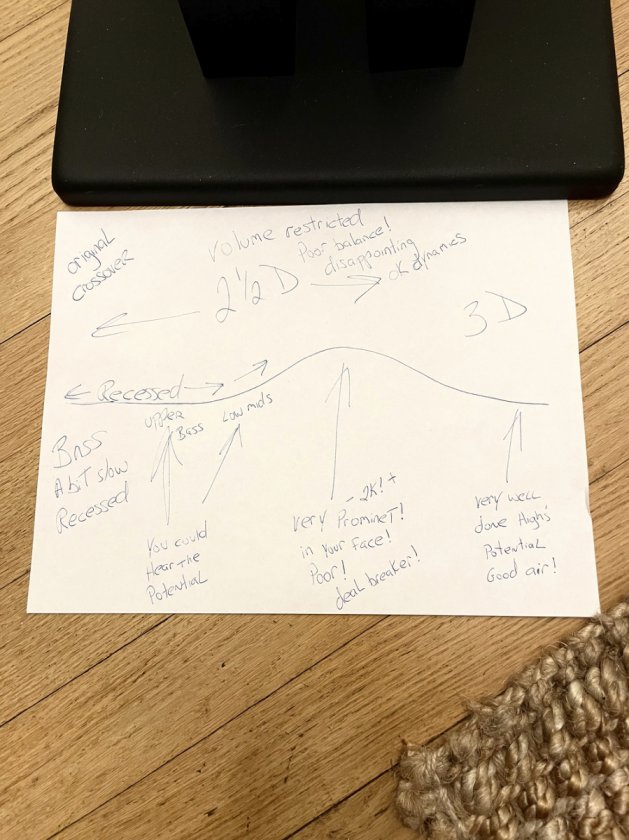 original
crossover
volume restricted
Poor balance!
disappointing
ok dynamics
2 1/2 D
3D
Recessed
upper
Bass
Low mids
Bass
A bit slow
Recessed
You could
Hear The
Potential
~ 2K! +
very Prominet!
in your face!
Poor!
deal breaker!
very well
done High's
Potential
Good air!